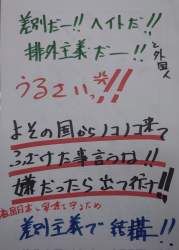 差別だー!! ヘイトだ!!
排外主義だー!!
と外国人
うるさいっ!!
よその国からノコノコ来て
ふざけた事言うな!!
嫌だったら出て行け!!
祖国日本と家族を守るため
差別主義で結構!!